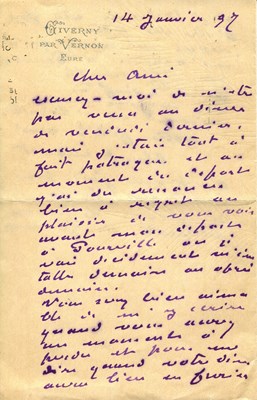 GIVERNY
PAR VERNON
EURE
14 Janvier 97
Cher Ami
excusez-moi de n'être
pas venu au diner
de vendredi dernier,
mais j'étais tout à
fait patraque et au
moment du départ
j'ai du renoncer
bien à regret au
plaisir de vous voir
avant mon départ
à Pourville où je
vais décidément m'ins
taller demain ou après
demain.
Vous serez bien aima
ble de m'y écrire
quand vous aurez
un moment à
perdre et pour me
dire quand votre diner
aura lieu en février